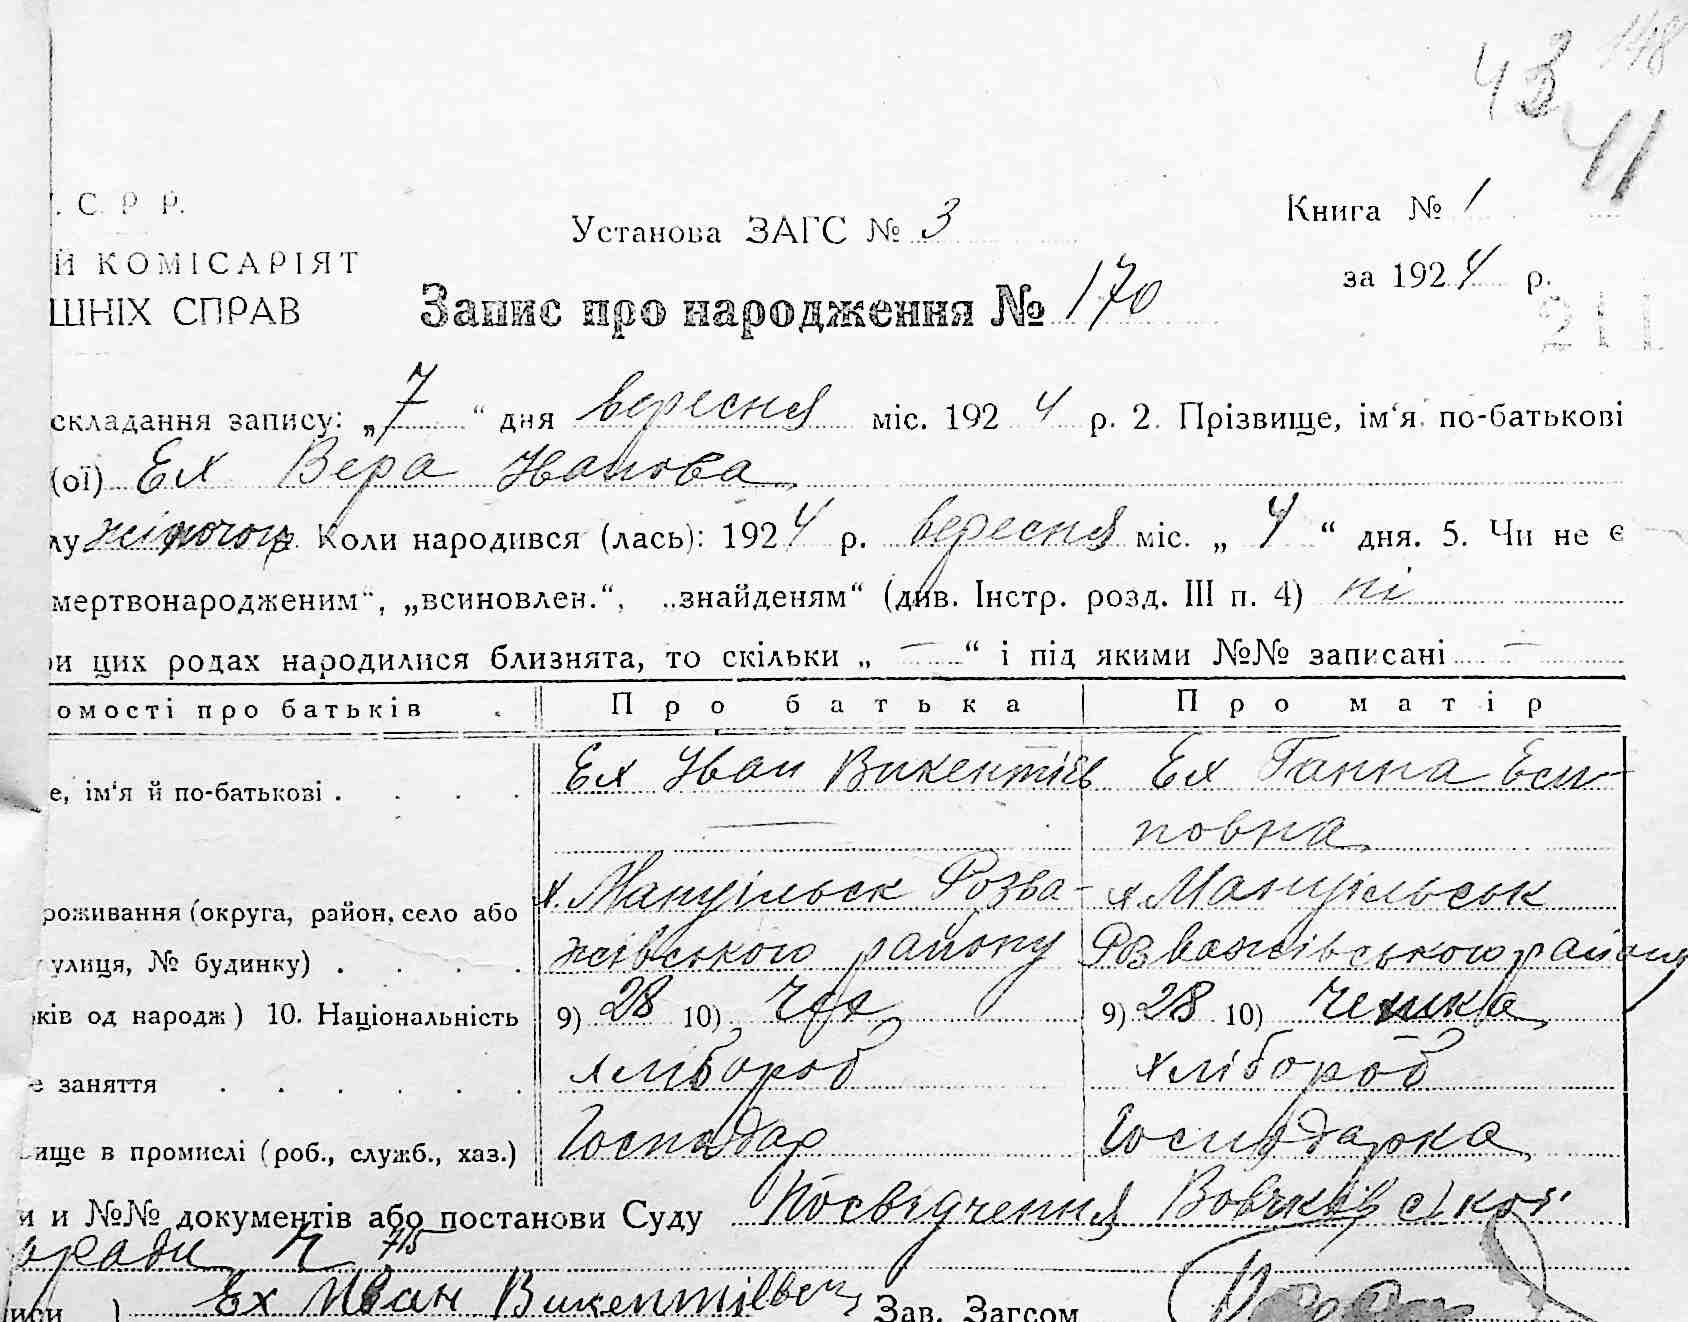 43 148
11
. С. Р Р.
Установа ЗАГС № 3
Книга № 1
Й КОМІСАРІЯТ
за 1924 р.
ШНІХ СПРАВ
Запис про народження № 170
211
складання запису: „7“ дня вересня міс. 1924 р. 2. Прізвище, ім‘я по-батькові
(ої) Ех Вера Іванова
лу жіночого Коли народився (лась): 1924 р. вересня міс. „4“ дня. 5. Чи не є
мертвонародженим“, „всиновлен.“, „знайденям“ (див. Інстр. розд. III п. 4) ні
ри цих родах народилися близнята, то скільки „ — “ і під якими №№ записані —
омості про батьків . Про батька Про матір
е, ім‘я й по-батькові . . . . Ех Іван Викентієв Ех Ганна Еси-
повна
роживання (округа, район, село або х. Мануільск Розва- х. Мануїльськ
улиця, № будинку) . . . . жівського району Розважівського району
ків од народж) 10. Національність 9) 28 10) Чех 9) 28 10) Чешка
е заняття . . . . . . хлібороб хлібороб
ище в промислі (роб., служб., хаз.) Господар Господарка
и и №№ документів або постановы Суду Посвідчення Вовчківської
ради Ч 715
иси ) Ех Иван Викентіевич Зав. Загсом